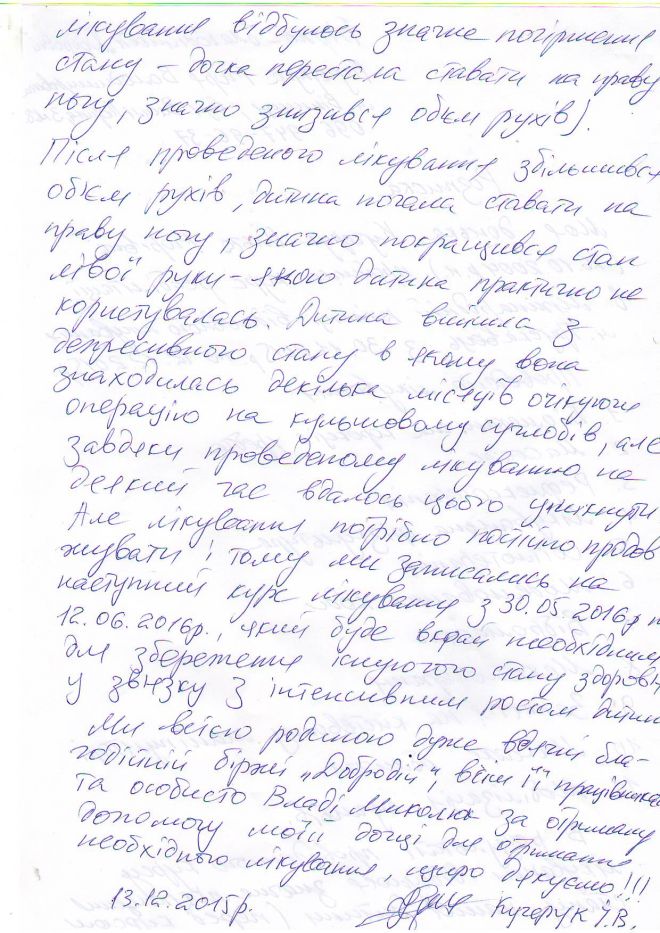 лікування відбулось значне погіршення
стану – дочка перестала ставати на праву
ногу, значно знизився обєм рухів).
Після проведеного лікування збільшився
обєм рухів, дитина почала ставати на
праву ногу, значно покращився стан
лівої руки – якою дитина практично не
користувалась. Дитина вийшла з
депресивного стану в якому вона
знаходилась декілька місяців очікуючи
операцію на кульшовому суглобів, але
завдяки проведеному лікуванню на
деякий час вдалось цього уникнути
Але лікування потрібно постійно продов
жувати і тому ми записались на
наступний курс лікування з 30.05.2016р п
12.06.2016р., який буде вкрай необхідним
для збереження існуючого стану здоровя
у звязку з інтенсивним ростом дитини
Ми всією родиною дуже вдячні бла-
годійній біржі „Добродій", всім її працівникам
та особисто Владі Миколюк за отриману
допомогу моїй дочці для отримання
необхідного лікування, щиро дякуємо!!!
13.12.2015р. Кучерук І.В.